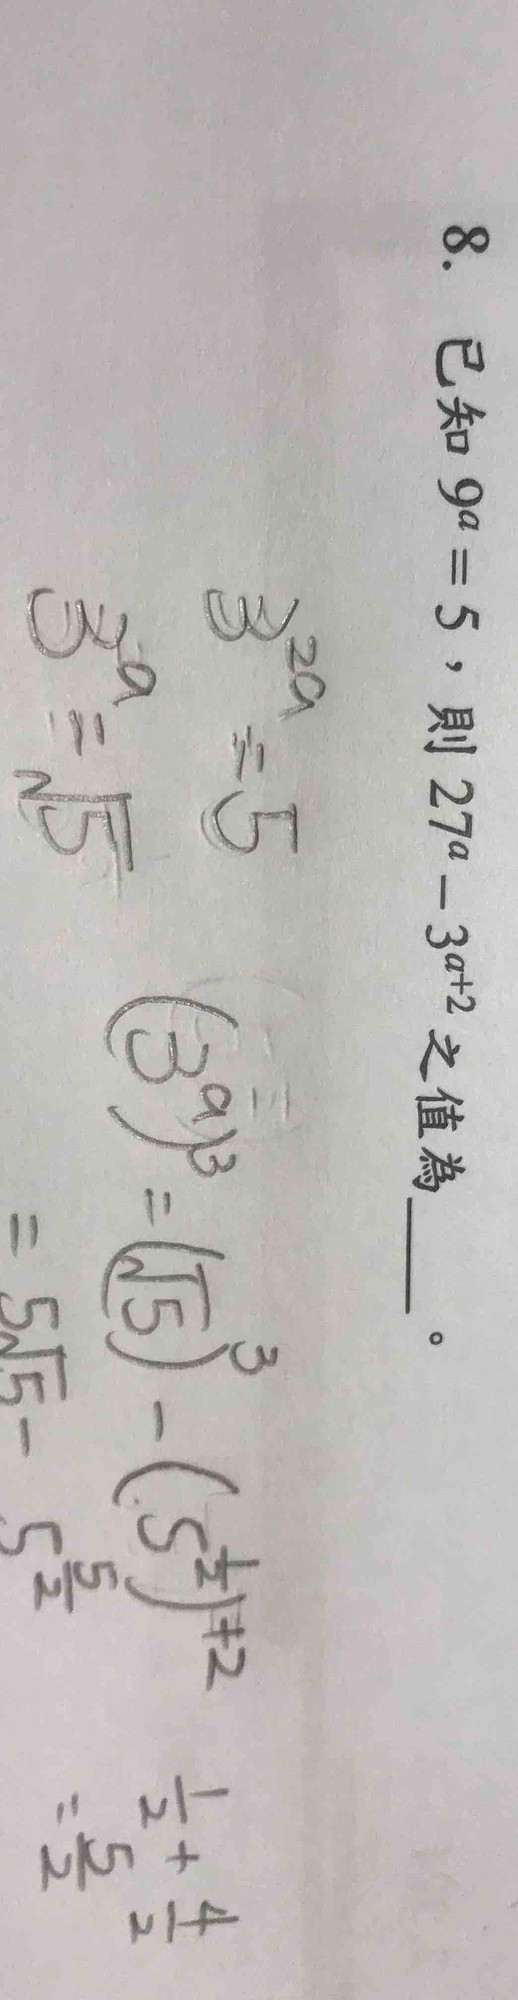 8. 已知 9ᵃ = 5,則 27ᵃ − 3ᵃ⁺² 之值為____。
3²ᵃ = 5
3ᵃ = √5
(3ᵃ)³ = (√5)³ − (5^½)⁺²
= 5√5 − 5^(5/2)
1/2 + 4/2
= 5/2